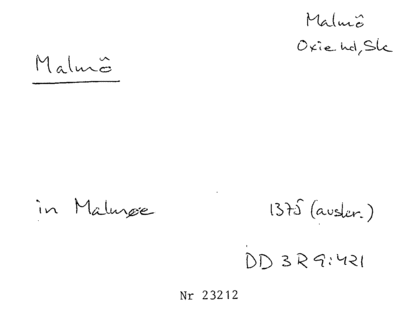 Malmö
Oxie hd, Sk
Malmö
in Malmøe 1375 (avskr.)
DD 3 R 9:421
Nr 23212